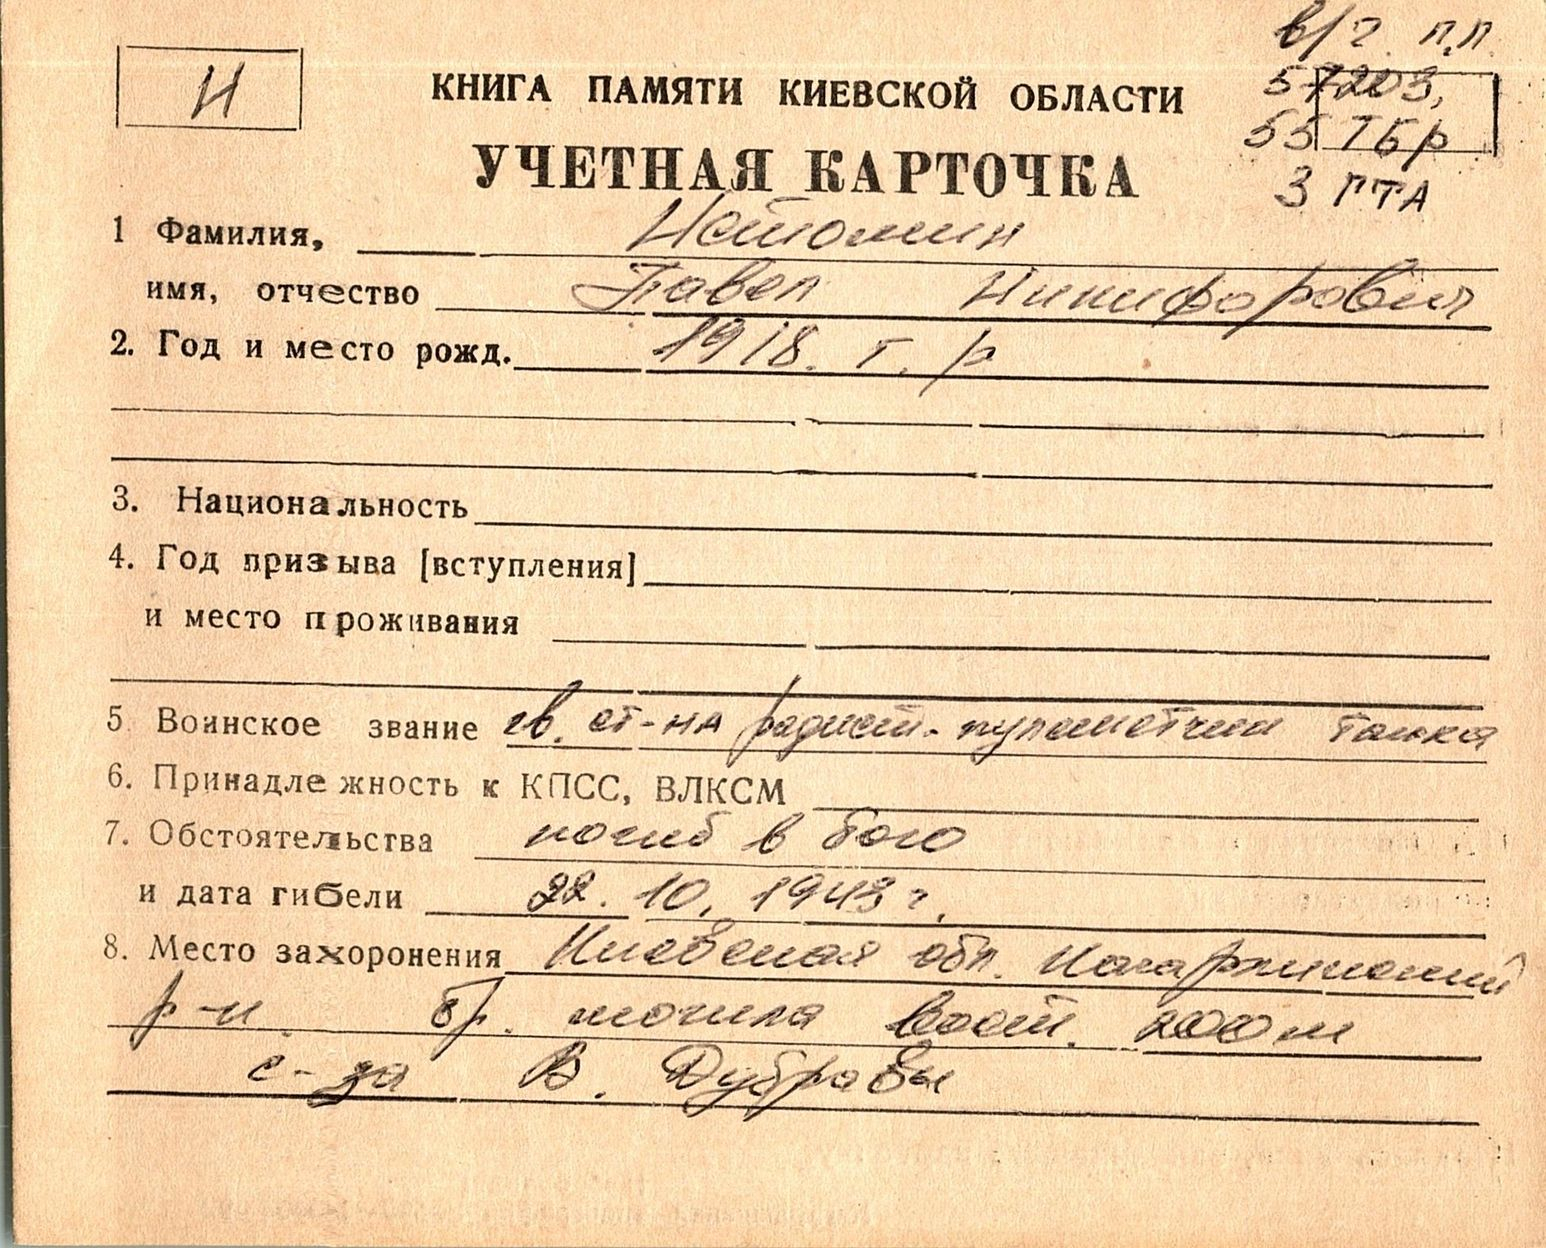 в/ч п.п
И
КНИГА ПАМЯТИ КИЕВСКОЙ ОБЛАСТИ
57203,
55 ТБр
УЧЕТНАЯ КАРТОЧКА
3 ГТА
1 Фамилия, Истомин
имя, отчество Павел Никифорович
2. Год и место рожд. 1918. г. р
3. Национальность
4. Год призыва [вступления]
и место проживания
5 Воинское звание гв. ст-на радист-пулеметчик танка
6. Принадлежность к КПСС, ВЛКСМ
7. Обстоятельства погиб в бою
и дата гибели 22. 10. 1943 г.
8. Место захоронения Киевская обл. Кагарлыкский
р-н. бр. могила вост. 200 м
с-за В. Дубравы